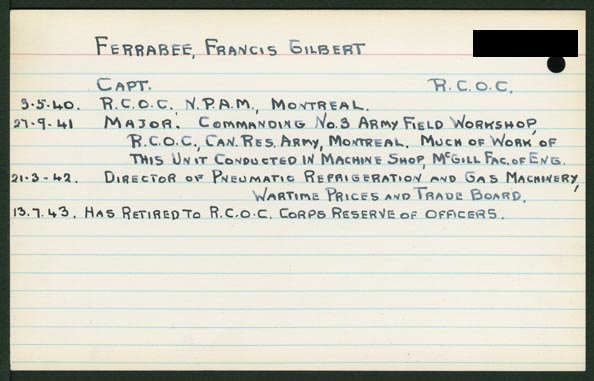 FERRABEE, FRANCIS GILBERT
CAPT. R.C.O.C.
3.5.40. R.C.O.C. N.P.A.M., MONTREAL.
27.9.41 MAJOR. COMMANDING NO.3 ARMY FIELD WORKSHOP,
R.C.O.C., CAN. RES. ARMY, MONTREAL. MUCH OF WORK OF
THIS UNIT CONDUCTED IN MACHINE SHOP, MCGILL FAC. OF ENG.
21.3.42. DIRECTOR OF PNEUMATIC REFRIGERATION AND GAS MACHINERY,
WARTIME PRICES AND TRADE BOARD.
13.7.43. HAS RETIRED TO R.C.O.C. CORPS RESERVE OF OFFICERS.